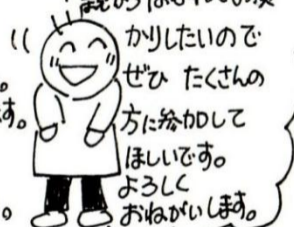 かりしたいので
ぜひ たくさんの
方に参加して
ほしいです。
よろしく
おねがいします。
。
す。
。